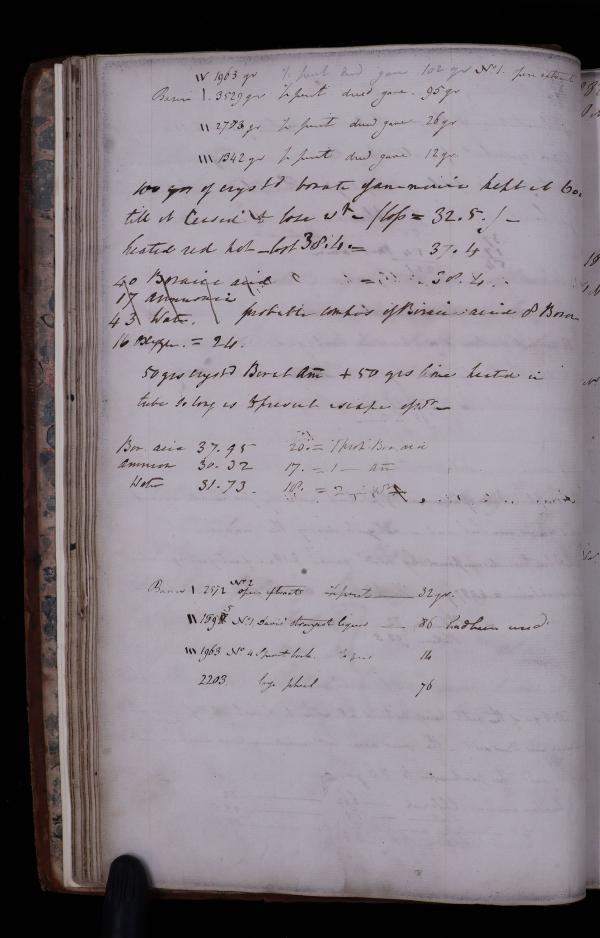 IV 1963 gr ½ pint dried gave 102 gr No 1.
Basin I. 3529 gr ½ pint dried gave 95 gr
II 2773 gr ½ pint dried gave 26 gr
III 1342 gr ½ pint dried gave 12 gr
100 grs of crystd borate of ammonia kept at 60.
till it ceased to lose wt - (loss = 32.5.) -
heated red hot - lost 38.4. = 37.4
40 Boracic acid = 38.4.
17 ammonia
43 Water. probable compos of Boracic acid 8 Boron
16 Oxygen. = 24.
50 grs crystd Borat Am + 50 grs lime heated in
tube so long as to prevent escape of Wr -
Bor. acid 37.95 20. = 1 prop Bor. acid
ammon 30.32 17. = 1 - am
Water 31.73. 18. = 2 - Wr
Basin I. 2572 No 2 ½ pint 32 gr.
II 159 No 1 strongest liquor 86 had been used.
III 1963 No 4 14
2203. large phial 76